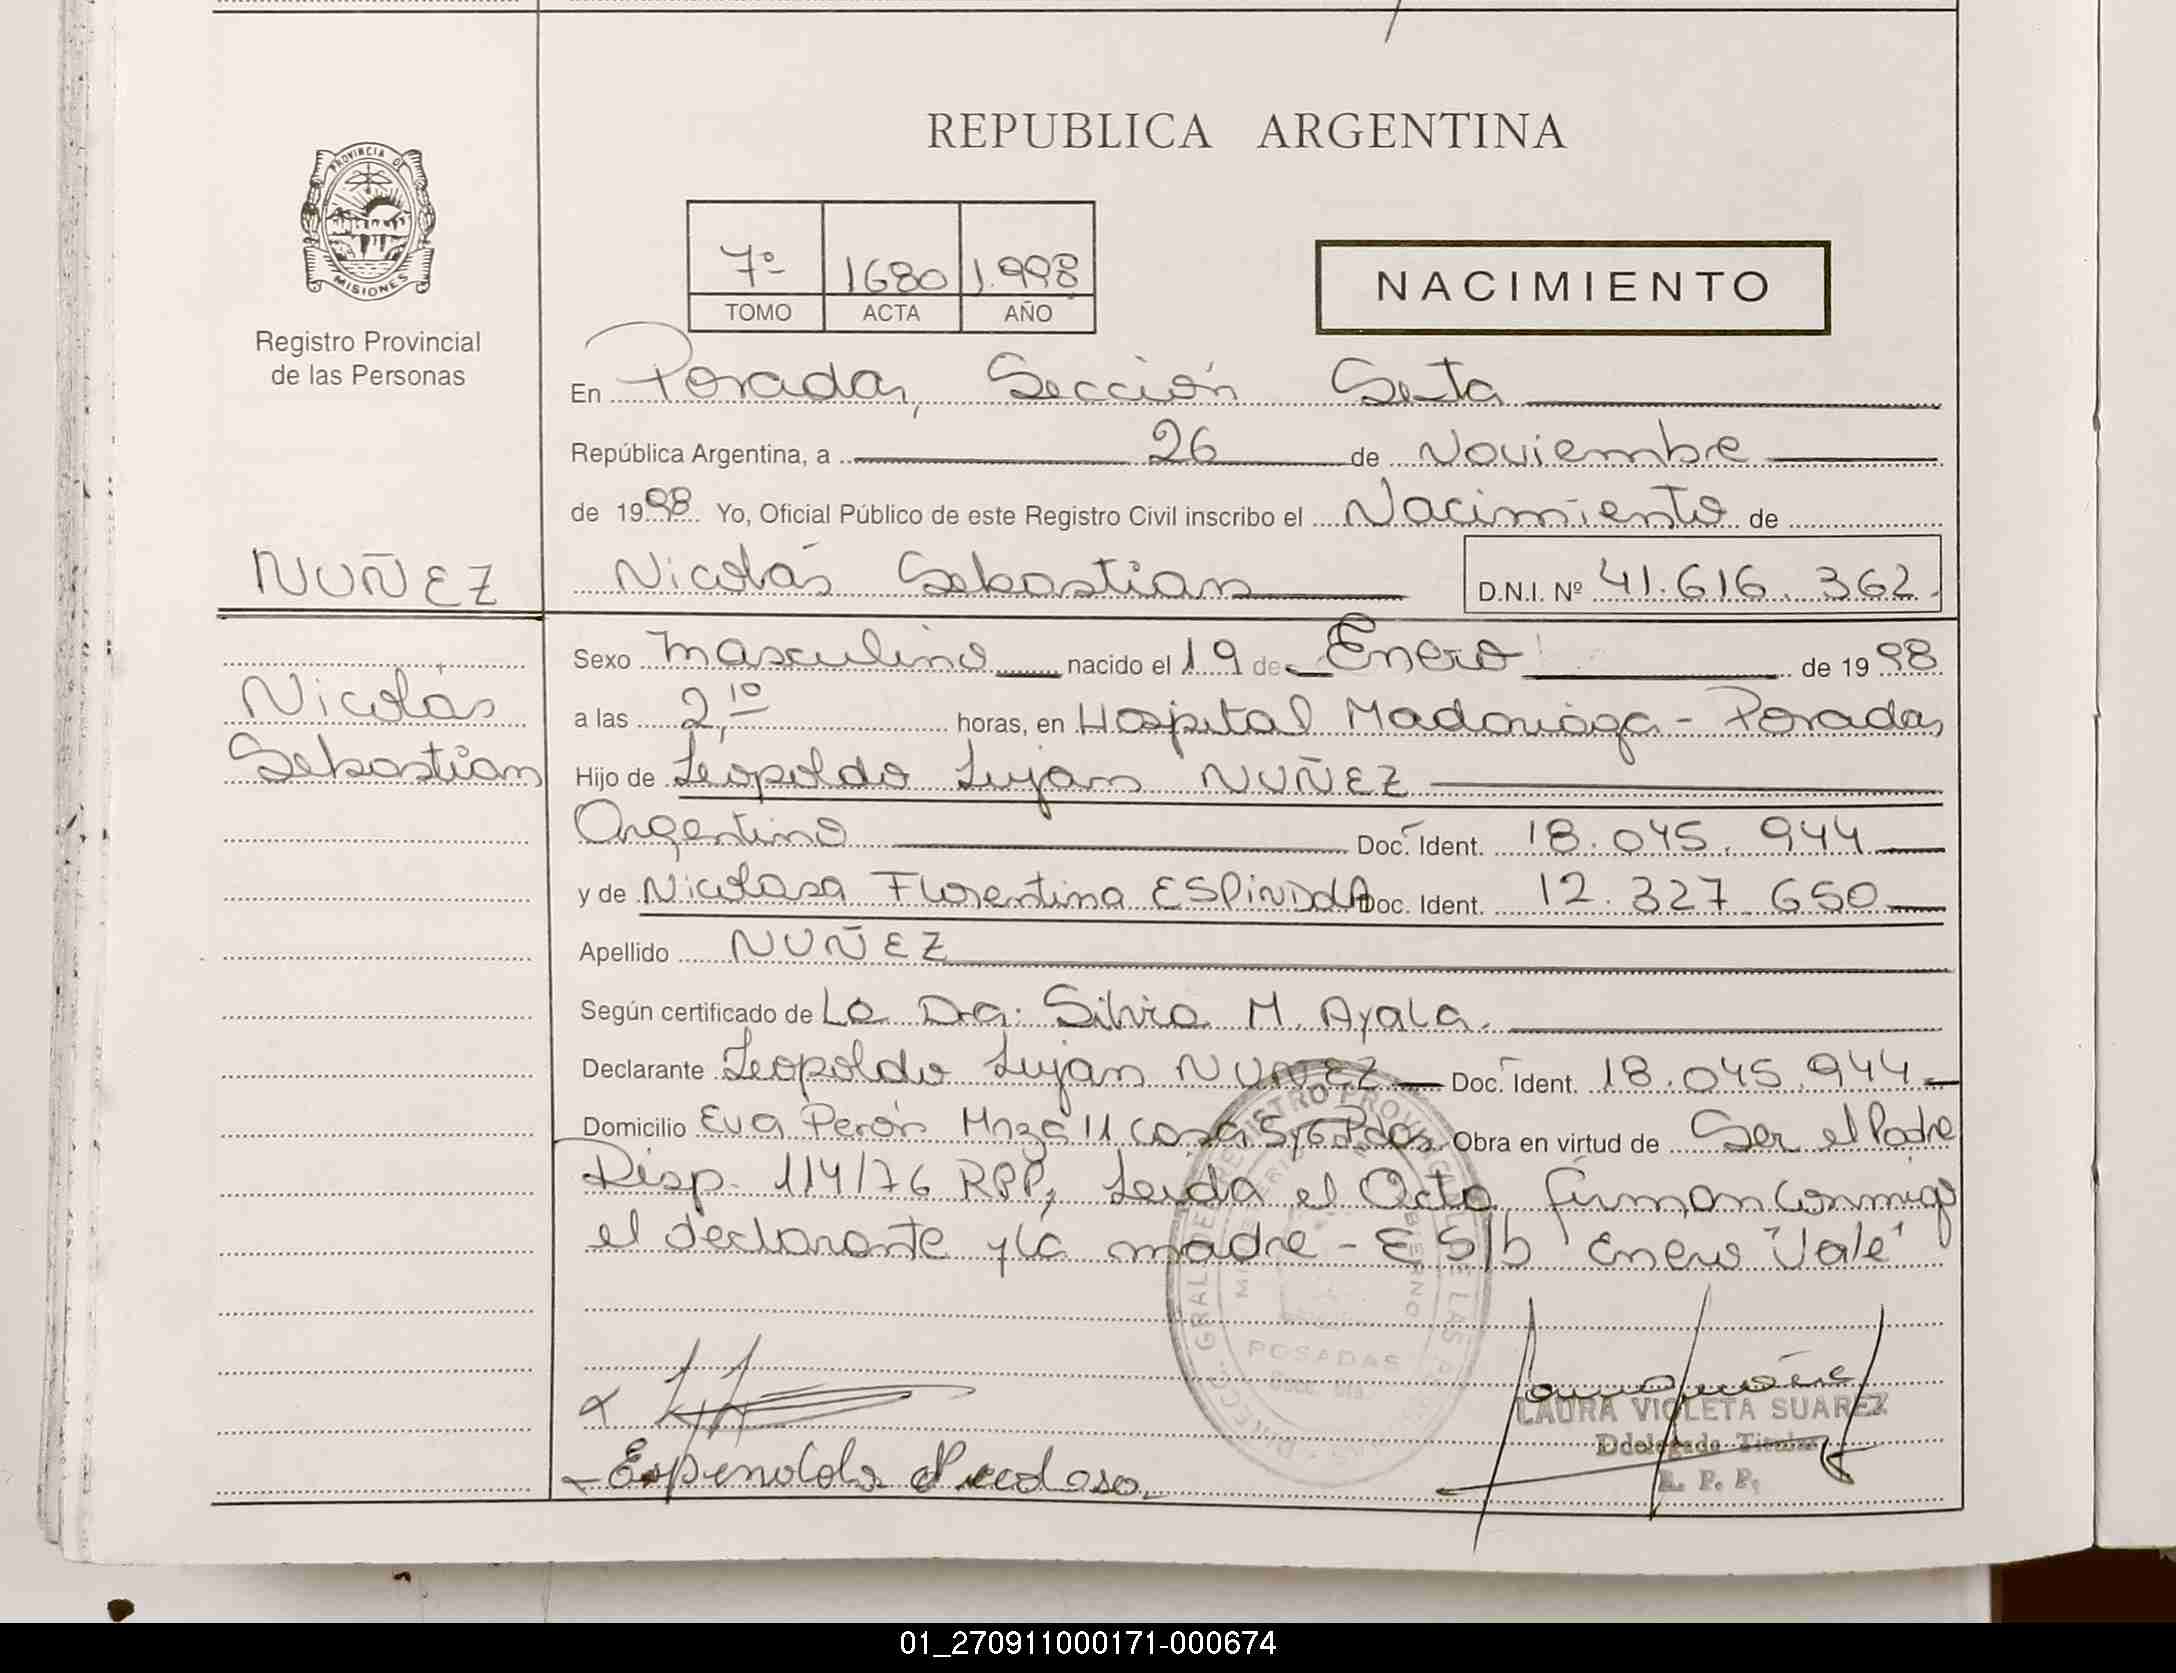 REPUBLICA ARGENTINA
PROVINCIA DE
MISIONES
Registro Provincial
de las Personas
7º 1680 1.998
TOMO ACTA AÑO
NACIMIENTO
En Posadas, Sección Sexta
República Argentina, a 26 de Noviembre
de 1998 Yo, Oficial Público de este Registro Civil inscribo el Nacimiento de
NUÑEZ
Nicolás Sebastian D.N.I. Nº 41.616.362.
Sexo masculino nacido el 19 de Enero de 1998
Nicolás
Sebastian
a las 2,10 horas, en Hospital Madariaga - Posadas
Hijo de Leopoldo Lujan NUÑEZ
Argentino Doc. Ident. 18.045.944
y de Nicolasa Florentina ESPINDOLA Doc. Ident. 12.327.650
Apellido NUÑEZ
Según certificado de La Dra. Silvia M. Ayala.
Declarante Leopoldo Lujan NUÑEZ Doc. Ident. 18.045.944
Domicilio Eva Perón Mnza 11 casa 5 y 6 Pdas Obra en virtud de Ser el Padre
Disp. 114/76 RPP, Leida el Acta, firman conmigo
el declarante y la madre - E S/b Enero "Vale"
REGISTRO PROVINCIAL DE LAS
POSADAS
LAURA VIOLETA SUAREZ
Ddelegada Titular
R. P. P.
01_270911000171-000674